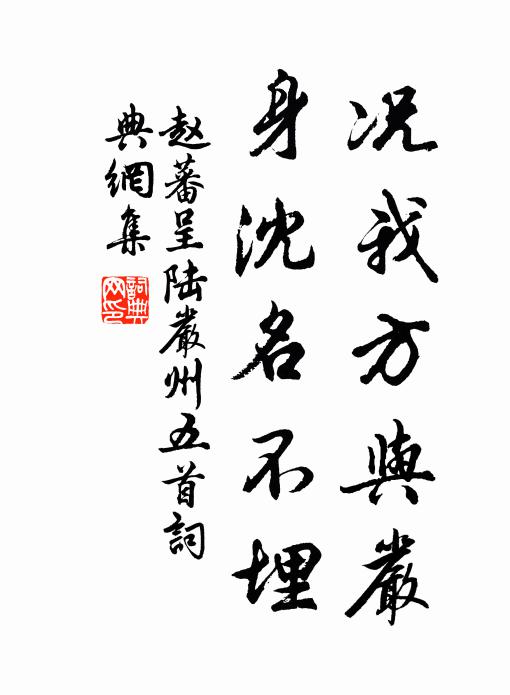 况我方與嚴
身沈名不埋
赵蕃呈陆嚴州五首詞
典網集
詞典网印